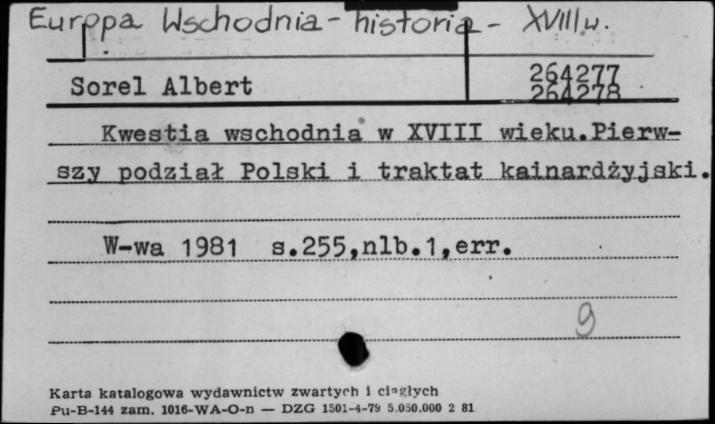 Europa Wschodnia - historia - XVIII w.
Sorel Albert
264277
264278
Kwestia wschodnia w XVIII wieku.Pierw-
szy podział Polski i traktat kainardżyjski.
W-wa 1981 s.255,nlb.1,err.
9
Karta katalogowa wydawnictw zwartych i ciągłych
Pu-B-144 zam. 1016-WA-O-n — DZG 1501-4-79 5.050.000 2 81